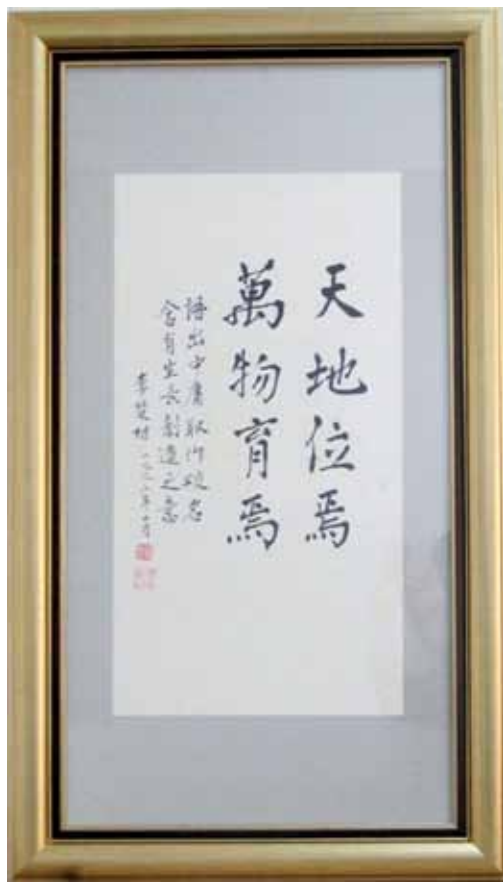 天地位焉
萬物育焉
語出中庸取作校名
含有生長創造之意
李楚材